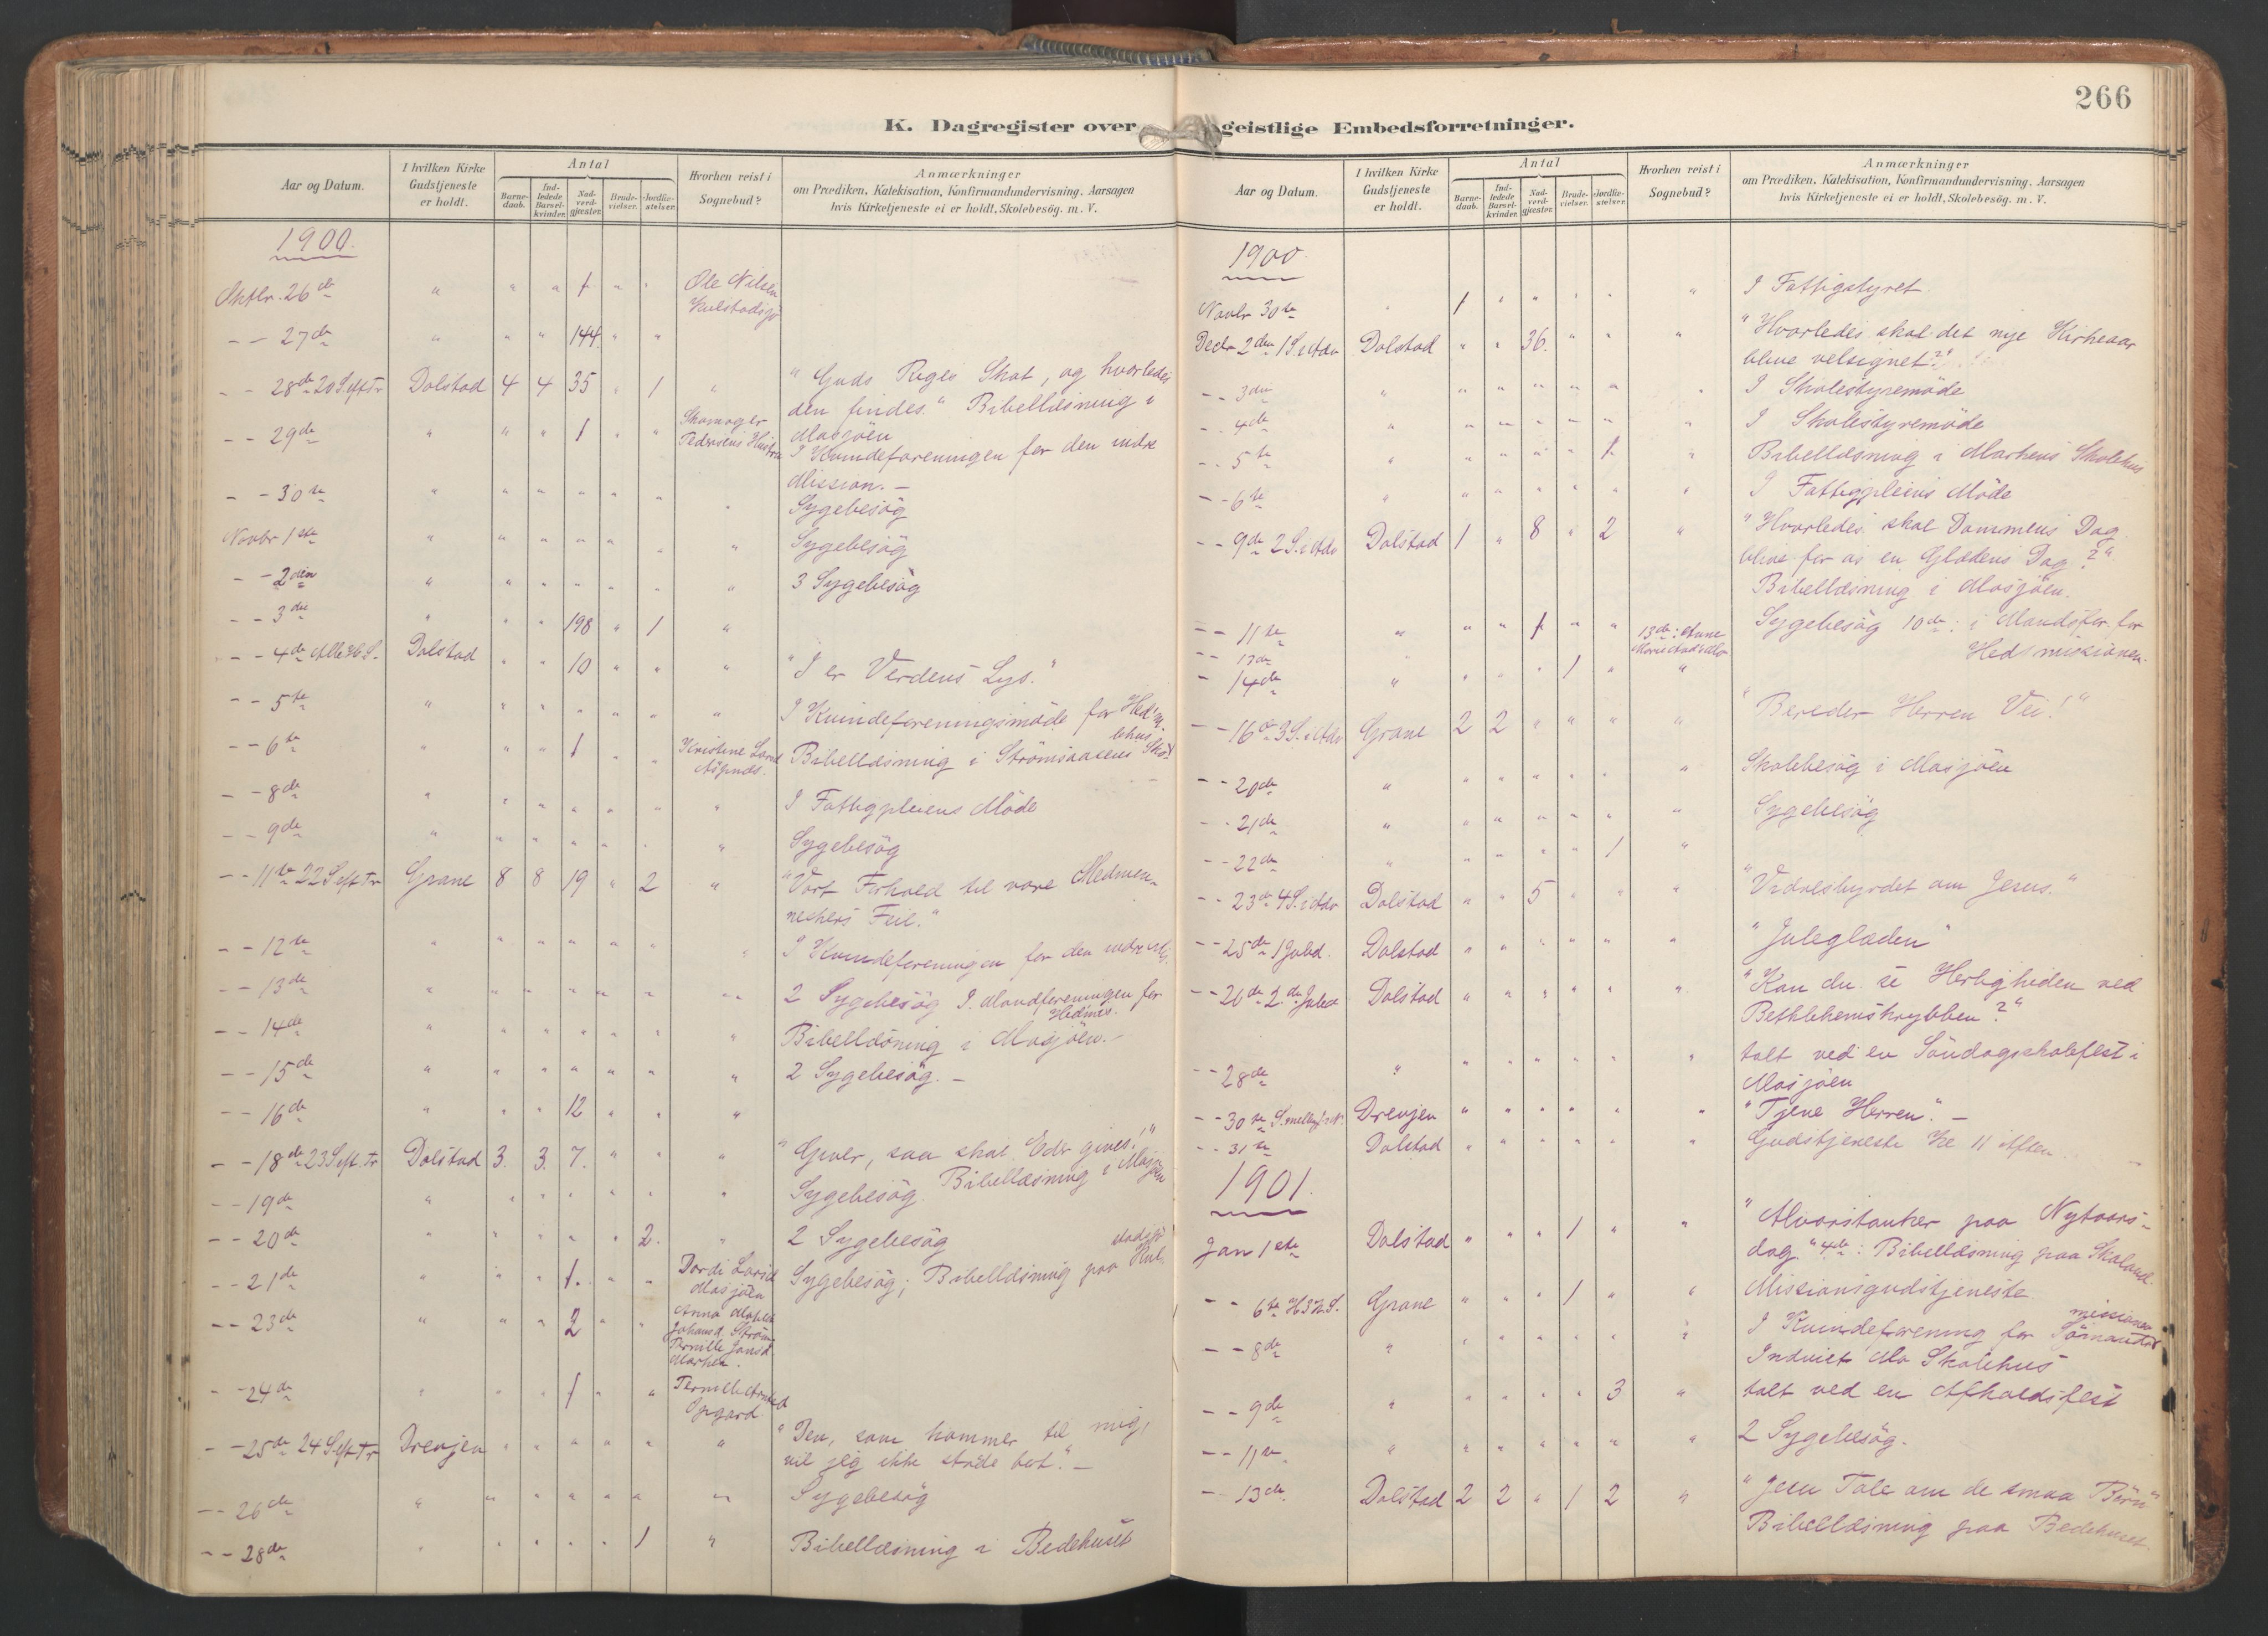 266
K. Dagregister over geistlige Embedsforretninger.
Aar og Datum.
I hvilken Kirke Gudstjeneste er holdt.
Antal
Barne-daab.
Ind-ledede Barsel-kvinder.
Nad-verd-gjæster.
Brude-vielser.
Jordfæ-stelser.
Hvorhen reist i Sognebud?
Anmærkninger
om Prædiken, Katekisation, Konfirmandundervisning, Aarsagen
hvis Kirketjeneste ei er holdt, Skolebesög. m. V.
1900.
Oktbr. 26de " " " 1 " " Ole Nilsen Kulstadsjö
-- 27de " " " 144 " "
-- 28de 20 S eft Tr Dolstad 4 4 35 " 1 " "Guds Riges Skat, og hvorledes
den findes." Bibellæsning i
Mosjöen
-- 29de " " " 1 " " Skomager Pedersens Hustru I Kvindeforeningen for den indre
Mission. -
-- 30te " " " " " " " Sygebesög
Novbr 1ste " " " " " " " Sygebesög
-- 2den " " " " " " " 3 Sygebesög
-- 3die " " " 198 " 1 "
-- 4de Alle H. S. Dolstad " " 10 " " " "I er Verdens Lys."
-- 5te " " " " " " " I Kvindeforeningsmöde for Hed.m.
-- 6te " " " 1 " " Kristine Larsd Bibellæsning i Strömsaasens Skolehus
-- 8de " " " " " " " I Fattigpleiens Möde
-- 9de " " " " " " " Sygebesög
-- 11te 22 S eft Tr Grane 8 8 19 " 2 " "Vort Forhold til vore Medmen-
neskers Feil."
-- 12te " " " " " " " I Kvindeforeningen for den indre M.
-- 13de " " " " " " " 2 Sygebesög I. Mandforeningen for
Hedmis.
-- 14de " " " " " " " Bibellæsning i Mosjöen. -
-- 15de " " " " " " " 2 Sygebesög. -
-- 16de " " " 12 " " "
-- 18de 23 S eft. Tr Dolstad 3. 3. 7. " " " "Giver, saa skal Eder gives!"
-- 19de " " " " " " " Sygebesög. Bibellæsning i Mosjöen
-- 20de " " " " " 2. " 2 Sygebesög
-- 21de " " " 1. " " Dordi Larsd Mosjöen Sygebesög; Bibellæsning paa Kulstadsjö
-- 23de " " " 2 " " Anna Johansd. Ström Pernille Jonsd Marken.
-- 24de " " " 1 " " Pernille
-- 25de 24 S eft Tr Drevjen " " " " " " "Den, som kommer til mig,
vil jeg ikke støde bort." -
-- 26de " " " " " " " Sygebesög
-- 28de " " " " " 1 " Bibellæsning i Bedehuset
1900.
Novbr 30te " 1 " " " " " I Fattigstyret.
Decbr 2den 1 S. i Adv Dolstad " " 36. " " " "Hvorledes skal det nye Kirkeaar
blive velsignet?"
-- 3die " " " " " " " I Skolestyremöde
-- 4de " " " " " " " I Skolestyremöde
-- 5te " " " " " 1 " Bibellæsning i Markens Skolehus
-- 6te " " " " " " " I Fattigpleiens Möde
-- 9de 2 S. i Adv Dolstad 1 " 8 " 2 " "Hvorledes skal Dommens Dag
blive for os en Glædens Dag?"
Bibellæsning i Mosjöen.
-- 11te " " " 1 " " 13de: Anne Marie Sygebesög 10de: i Mandsfor. for
Hedmissionen.
-- 13de
- 14de " " " " 1 " "
-- 16de 3 S. i Adv Grane 2 2 " " " " "Bereder Herren Vei!"
-- 20de " " " " " " " Skolebesög i Mosjöen
-- 21de " " " " " " " Sygebesög
-- 22de " " " " " 1 "
-- 23de 4 S. i Adv Dolstad " " 5 " " " "Vidnesbyrdet om Jesus."
-- 25de 1 Juled. Dolstad " " " " " " "Juleglæden"
-- 26de 2.den Juled Dolstad " " " " " " "Kan du se Herligheden ved
Bethlehemskrybben?"
-- 28de " " " " " " " talt ved en Söndagsskolefest i
Mosjöen
-- 30te S. mell. Drevjen " " " " " " "Tjene Herren". -
-- 31te Dolstad " " " " " " Gudstjeneste Kl 11 Aften.
1901.
Jan 1ste Dolstad " " " 1 " " "Alvorstanker paa Nytaars-
dag." 4de: Bibellæsning paa Skoland.
-- 6te H3K.S. Grane " " " 1 " " Missionsgudstjeneste
-- 8de " " " " " " " I Kvindeforening for Sömandsmissionen
Indviet Mo Skolehus
-- 9de " " " " " 3 " talt ved en Afholdsfest
-- 11te " " " " " " " 2 Sygebesög.
-- 13de. Dolstad 2 2 " 1 2 " "Jesu Tale om de smaa Börn"
Bibellæsning paa Bedehuset